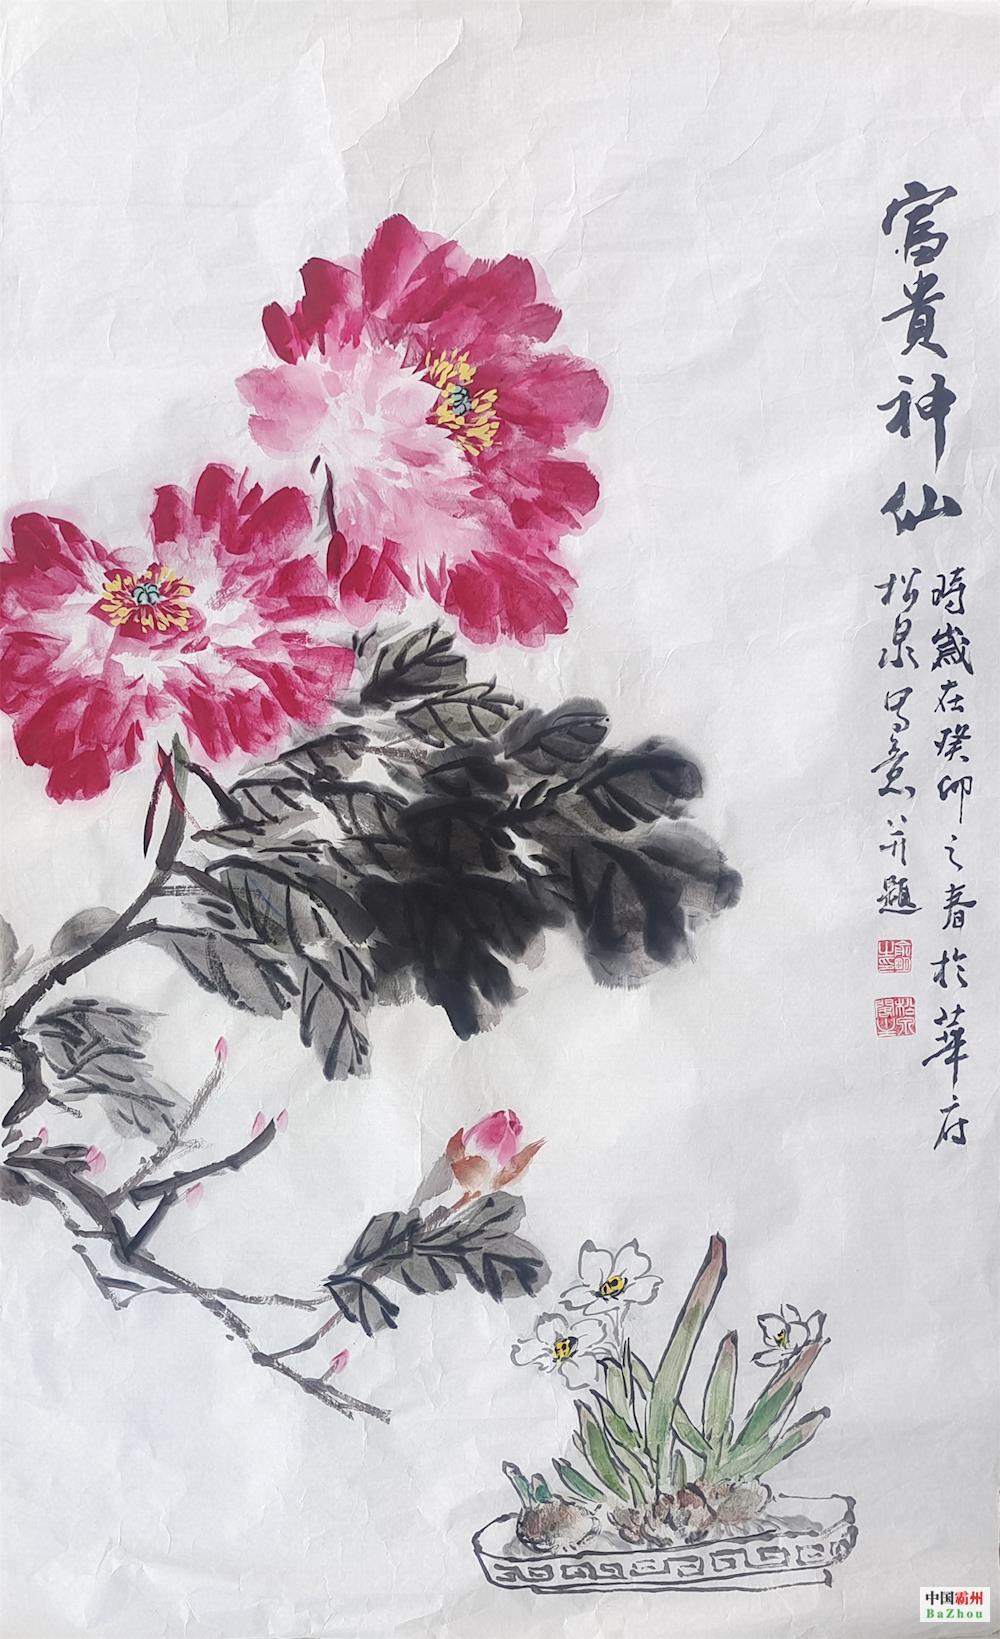 富貴神仙
時歲在癸卯之春於華府
松泉寫意並題
中国霸州
BaZhou